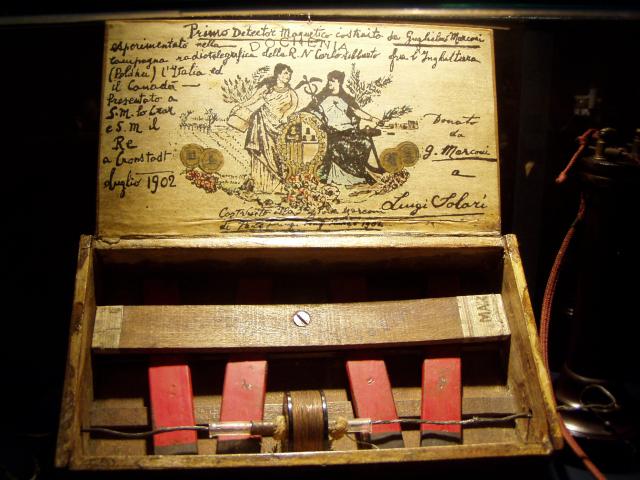 Primo Detector Magnetico costruito da Guglielmo Marconi
esperimentato nella
DOCHENIA
campagna radiotelegrafica della R. N. Carlo Alberto fra l'Inghilterra
(Poldhu) l'Italia ed
il Canadà
Presentato a
S. M. lo Czar
e S. M. il
Re
a Cronstadt
luglio 1902
Donato
da
G. Marconi
a
Luigi Solari
Costruito Marconi
1902
MAR